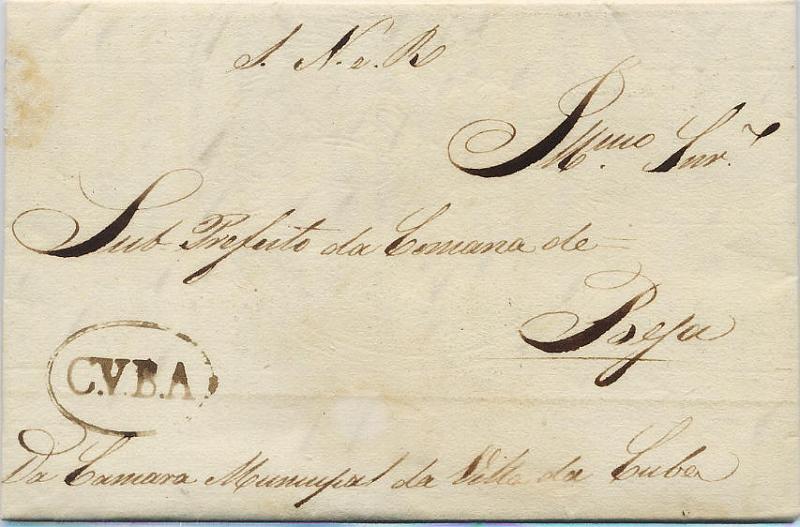 S. N. e. R
Illmo. Snr.
Sub-Prefeito da Comarca de
Beja
C.V.B.A
Da Camara Municipal da Villa da Cuba